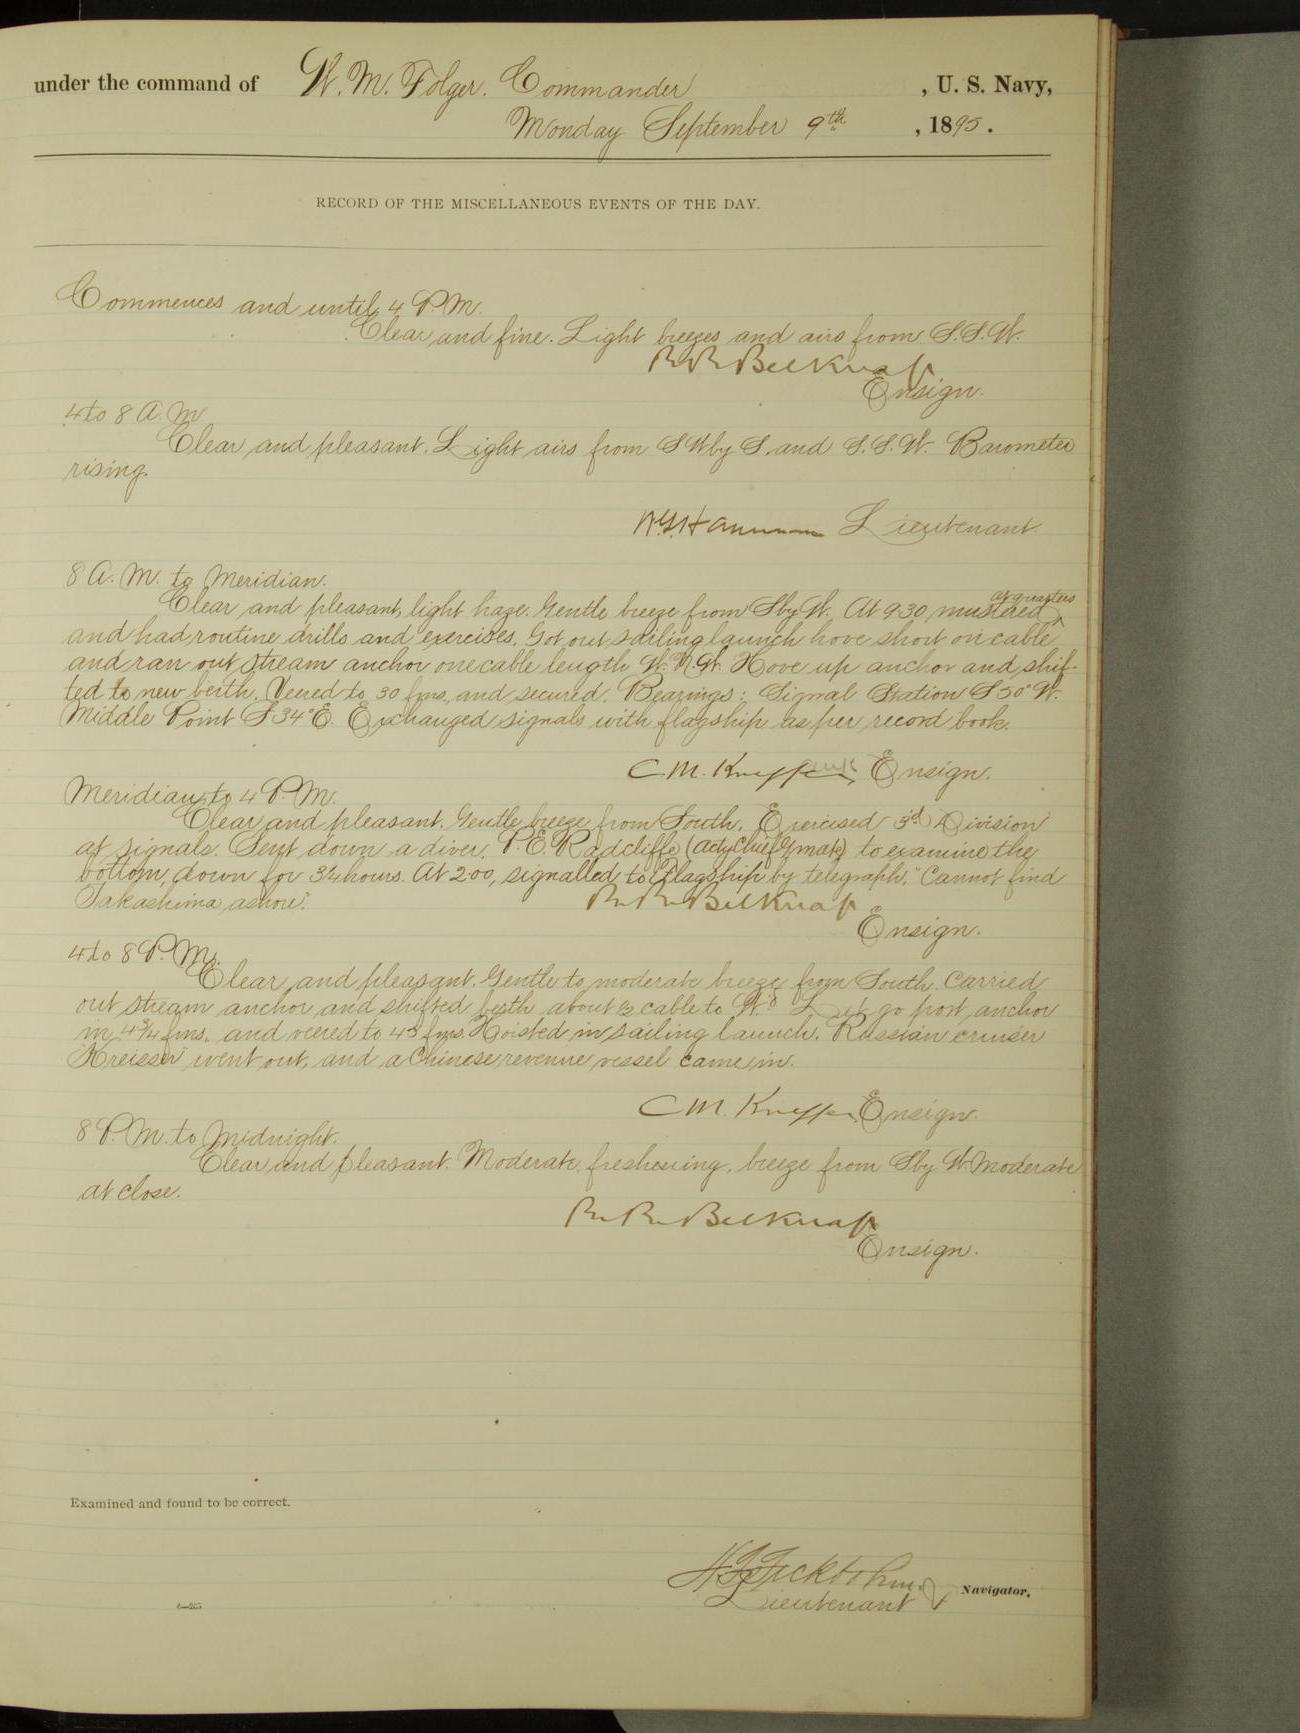 under the command of W. M. Folger. Commander , U. S. Navy,
Monday September 9th , 1895.
RECORD OF THE MISCELLANEOUS EVENTS OF THE DAY.
Commences and until 4 P.M.
Clear and fine. Light breezes and airs from S.S.W.
R R Belknap
Ensign.
4 to 8 A.M
Clear and pleasant. Light airs from SW by S. and S.S.W. Barometer
rising.
Lieutenant.
8 A.M. to Meridian.
at quarters
Clear and pleasant, light haze. Gentle breeze from S by W. At 9 30, mustered
and had routine drills and exercises. Got out sailing launch hove short on cable
and ran out stream anchor one cable length W.N.W. Hove up anchor and shif-
ted to new berth. Veered to 30 fms., and secured. Bearings: Signal Station S 50° W.
Middle Point S 34° E. Exchanged signals with flagship as per record book.
C M. Ensign.
Meridian to 4 P.M.
Clear and pleasant. Gentle breeze from South. Exercised 3d Division
at signals. Sent down a diver, P. E. Radcliffe (acty Chief G mate) to examine the
bottom, down for 3/4 hours. At 2.00, signalled to Flagship by telegraph, "Cannot find
Takashima ashore."
R. R. Belknap
Ensign.
4 to 8 P.M.
Clear and pleasant. Gentle to moderate breeze from South. Carried
out stream anchor and shifted berth about 1/2 cable to W'd Let go port anchor
in 4 3/4 fms. and veered to 45 fms. Hoisted in sailing launch. Russian cruiser
"Kreisser" went out, and a Chinese revenue vessel came in.
C M. Ensign.
8 P.M. to Midnight.
Clear and pleasant. Moderate freshening, breeze from S by W Moderate
at close.
R. R. Belknap
Ensign.
Examined and found to be correct.
Lieutenant & Navigator.